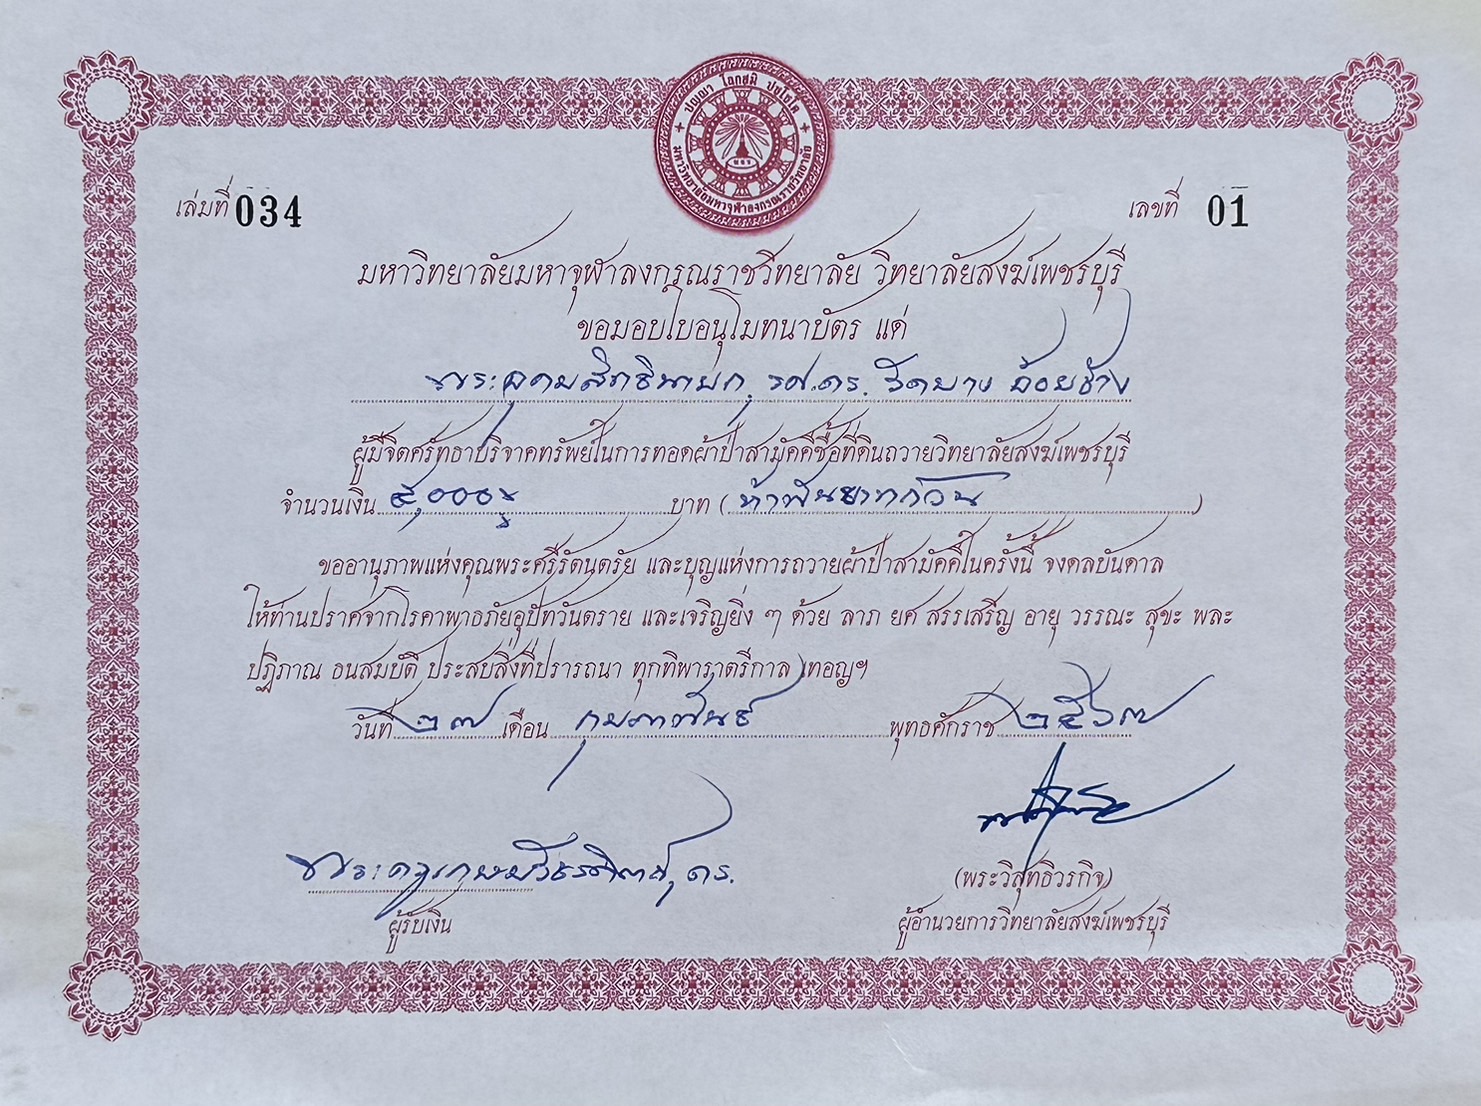 ปัญญา โลกสฺมิ ปชฺโชโต
มหาวิทยาลัยมหาจุฬาลงกรณราชวิทยาลัย
เล่มที่ 034
เลขที่ 01
มหาวิทยาลัยมหาจุฬาลงกรณราชวิทยาลัย วิทยาลัยสงฆ์เพชรบุรี
ขอมอบใบอนุโมทนาบัตร แด่
พระอุดมสิทธินายก, รศ.ดร. วัดบางอ้อยช้าง
ผู้มีจิตศรัทธาบริจาคทรัพย์ในการทอดผ้าป่าสามัคคีซื้อที่ดินถวายวิทยาลัยสงฆ์เพชรบุรี
จำนวนเงิน ๕,๐๐๐ บาท (ห้าพันบาทถ้วน)
ขออานุภาพแห่งคุณพระศรีรัตนตรัย และบุญแห่งการถวายผ้าป่าสามัคคีในครั้งนี้ จงดลบันดาล
ให้ท่านปราศจากโรคาพาธภัยอุปัทวันตราย และเจริญยิ่ง ๆ ด้วย ลาภ ยศ สรรเสริญ อายุ วรรณะ สุขะ พละ
ปฏิภาณ ธนสมบัติ ประสบสิ่งที่ปรารถนา ทุกทิพาราตรีกาล เทอญฯ
วันที่ ๒๗ เดือน กุมภาพันธ์ พุทธศักราช ๒๕๖๗
ดร.
(พระวิสุทธิวรกิจ)
ผู้รับเงิน
ผู้อำนวยการวิทยาลัยสงฆ์เพชรบุรี